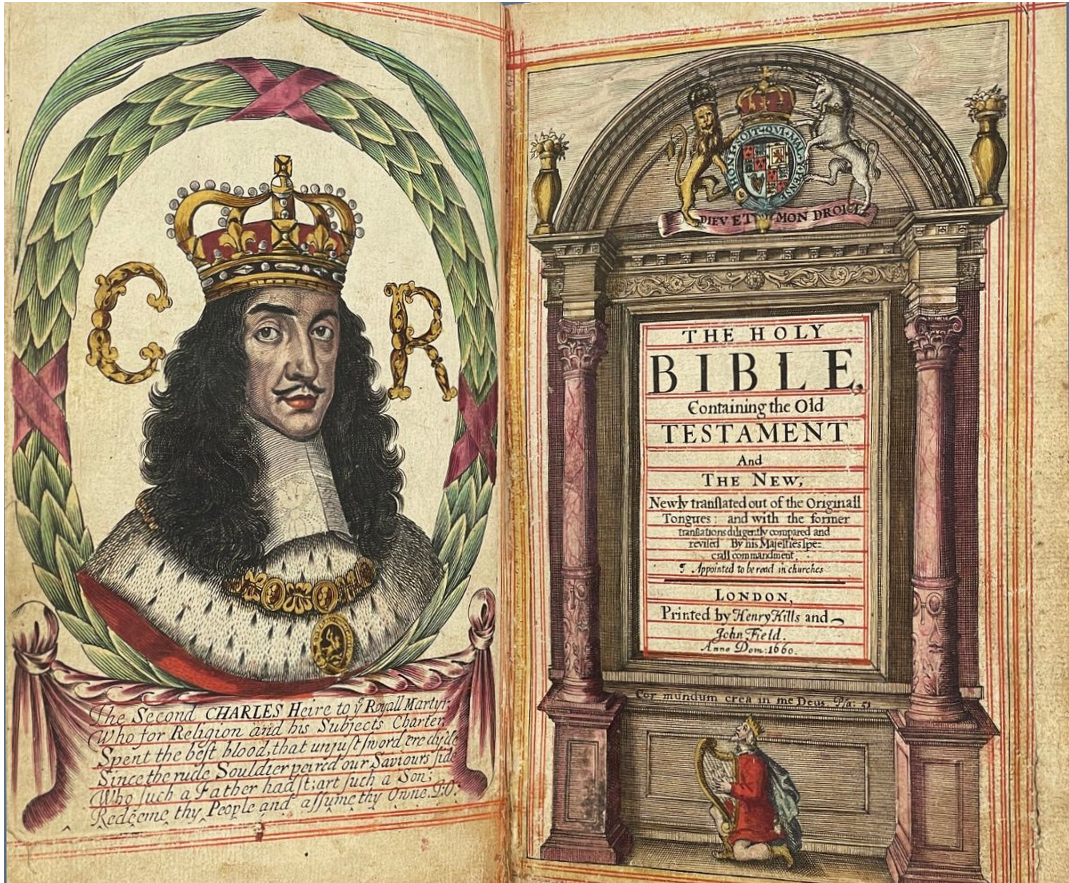 C R
The Second CHARLES Heire to yͤ Royall Martyr,
Who for Religion and his Subjects Charter
Spent the best blood, that unjust sword ere dy'de
Since the rude Souldier peirc'd our Saviours side
Who such a Father hadst; art such a Son;
Redeeme thy People and assume thy Owne.
HONI SOIT QVI MAL Y PENSE
DIEV ET MON DROICT
THE HOLY
BIBLE,
Containing the Old
TESTAMENT
And
THE NEW,
Newly translated out of the Originall
Tongues: and with the former
translations diligently compared and
revised By his Majesties spe=
ciall commandment
¶ Appointed to be read in churches
LONDON,
Printed by Henry Hills and
John Field.
Anno Dom: 1660.
Cor mundum crea in me Deus Psa: 51